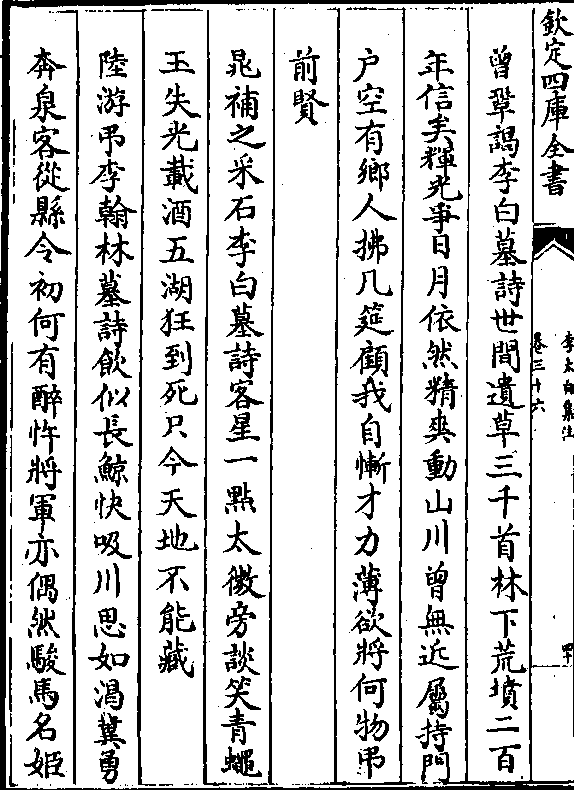 欽定四庫全書
李太白集注
卷三十六
四十
曾鞏謁李白墓詩世間遺草三千首林下荒墳二百
年信矣輝光爭日月依然精爽動山川曾無近屬持門
户空有鄉人拂几筵顧我自慚才力薄欲將何物弔
前賢
晁補之采石李白墓詩客星一點太微旁談笑青蠅
玉失光載酒五湖狂到死只今天地不能藏
陸游弔李翰林墓詩飲似長鯨快吸川思如渴驥勇
奔泉客從縣令初何有醉忤將軍亦偶然駿馬名姬